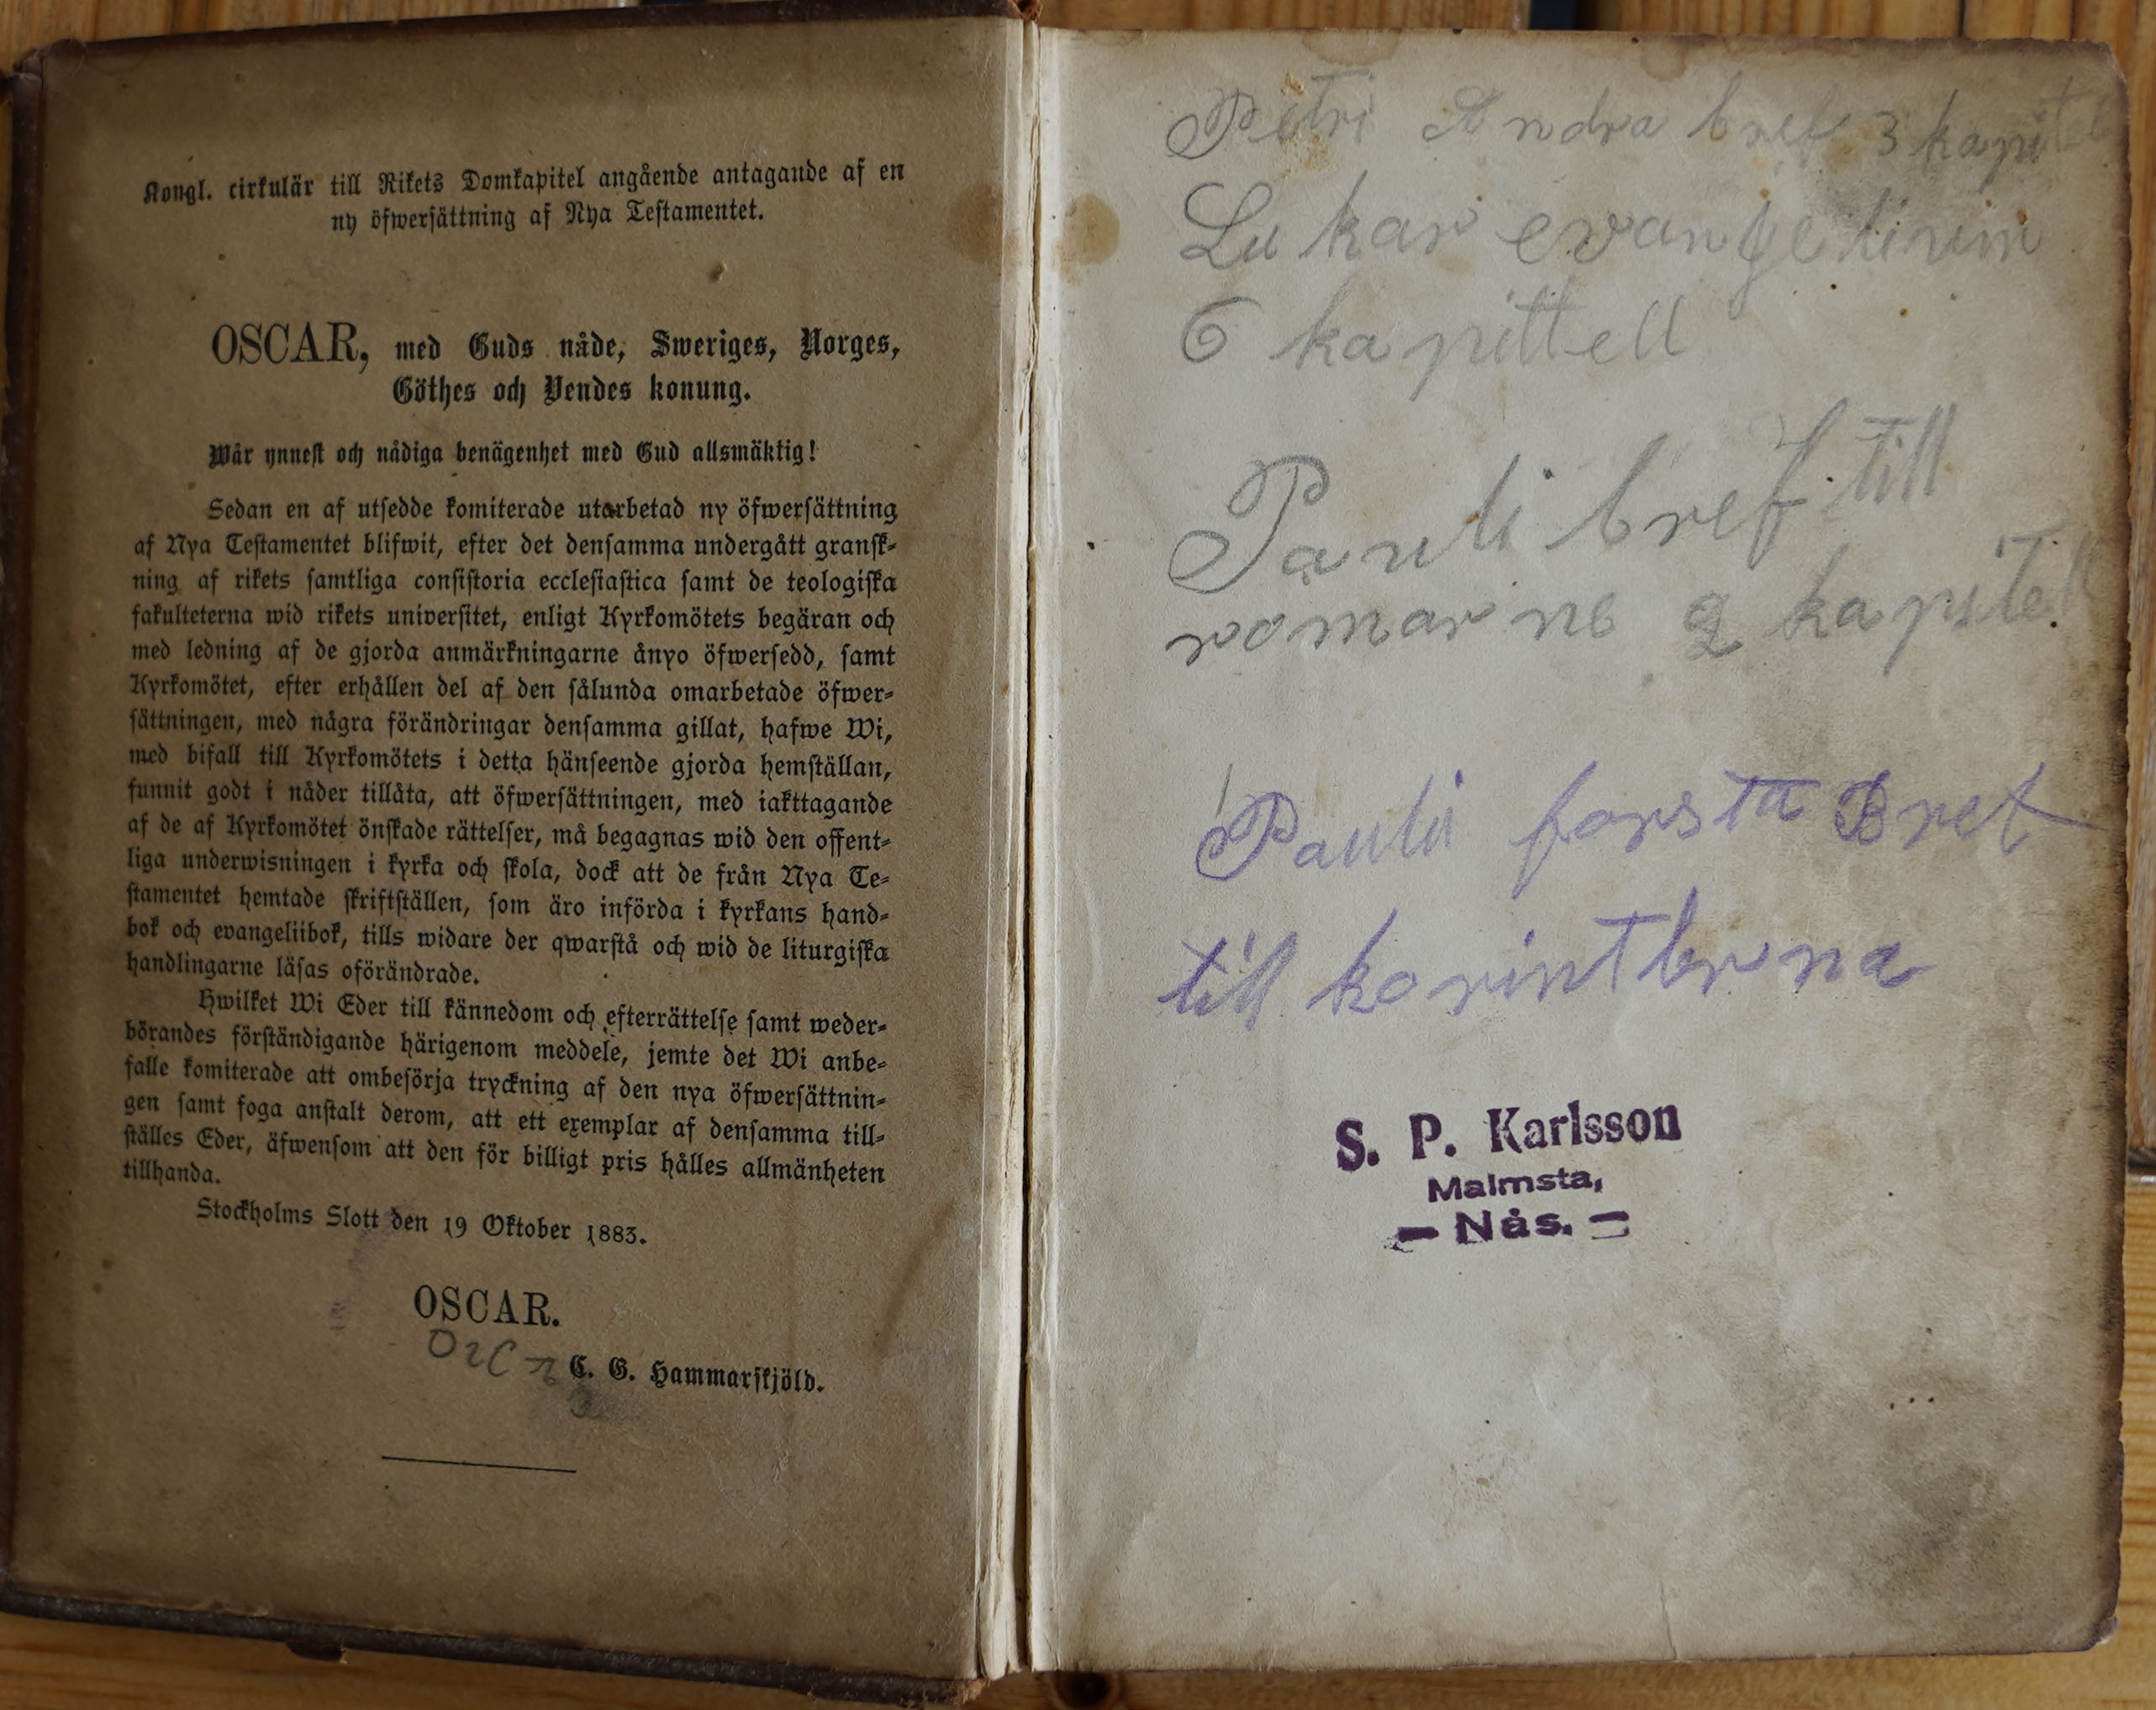 Kongl. cirkulär till Rikets Domkapitel angående antagande af en
ny öfwersättning af Nya Testamentet.
OSCAR, med Guds nåde, Sweriges, Norges,
Göthes och Vendes konung.
Wår ynnest och nådiga benägenhet med Gud allsmäktig!
Sedan en af utsedde komiterade utarbetad ny öfwersättning
af Nya Testamentet blifwit, efter det densamma undergått gransk-
ning af rikets samtliga consistoria ecclesiastica samt de teologiska
fakulteterna wid rikets universitet, enligt Kyrkomötets begäran och
med ledning af de gjorda anmärkningarne ånyo öfwersedd, samt
Kyrkomötet, efter erhållen del af den sålunda omarbetade öfwer-
sättningen, med några förändringar densamma gillat, hafwe Wi,
med bifall till Kyrkomötets i detta hänseende gjorda hemställan,
funnit godt i nåder tillåta, att öfwersättningen, med iakttagande
af de af Kyrkomötet önskade rättelser, må begagnas wid den offent-
liga underwisningen i kyrka och skola, dock att de från Nya Te-
stamentet hemtade skriftställen, som äro införda i kyrkans hand-
bok och evangeliibok, tills widare der qwarstå och wid de liturgiska
handlingarne läsas oförändrade.
Hwilket Wi Eder till kännedom och efterrättelse samt weder-
börandes förständigande härigenom meddele, jemte det Wi anbe-
falle komiterade att ombesörja tryckning af den nya öfwersättnin-
gen samt foga anstalt derom, att ett exemplar af densamma till-
ställes Eder, äfwensom att den för billigt pris hålles allmänheten
tillhanda.
Stockholms Slott den 19 Oktober 1883.
OSCAR.
C. G. Hammarskjöld.
Petri Andra bref 3 kapitel
Lukas evangelium
6 kapittell
Pauli bref till
romarne 2 kapitell
Pauli forsta Bref
till korinterna
S. P. Karlsson
Malmsta,
– Nås. –